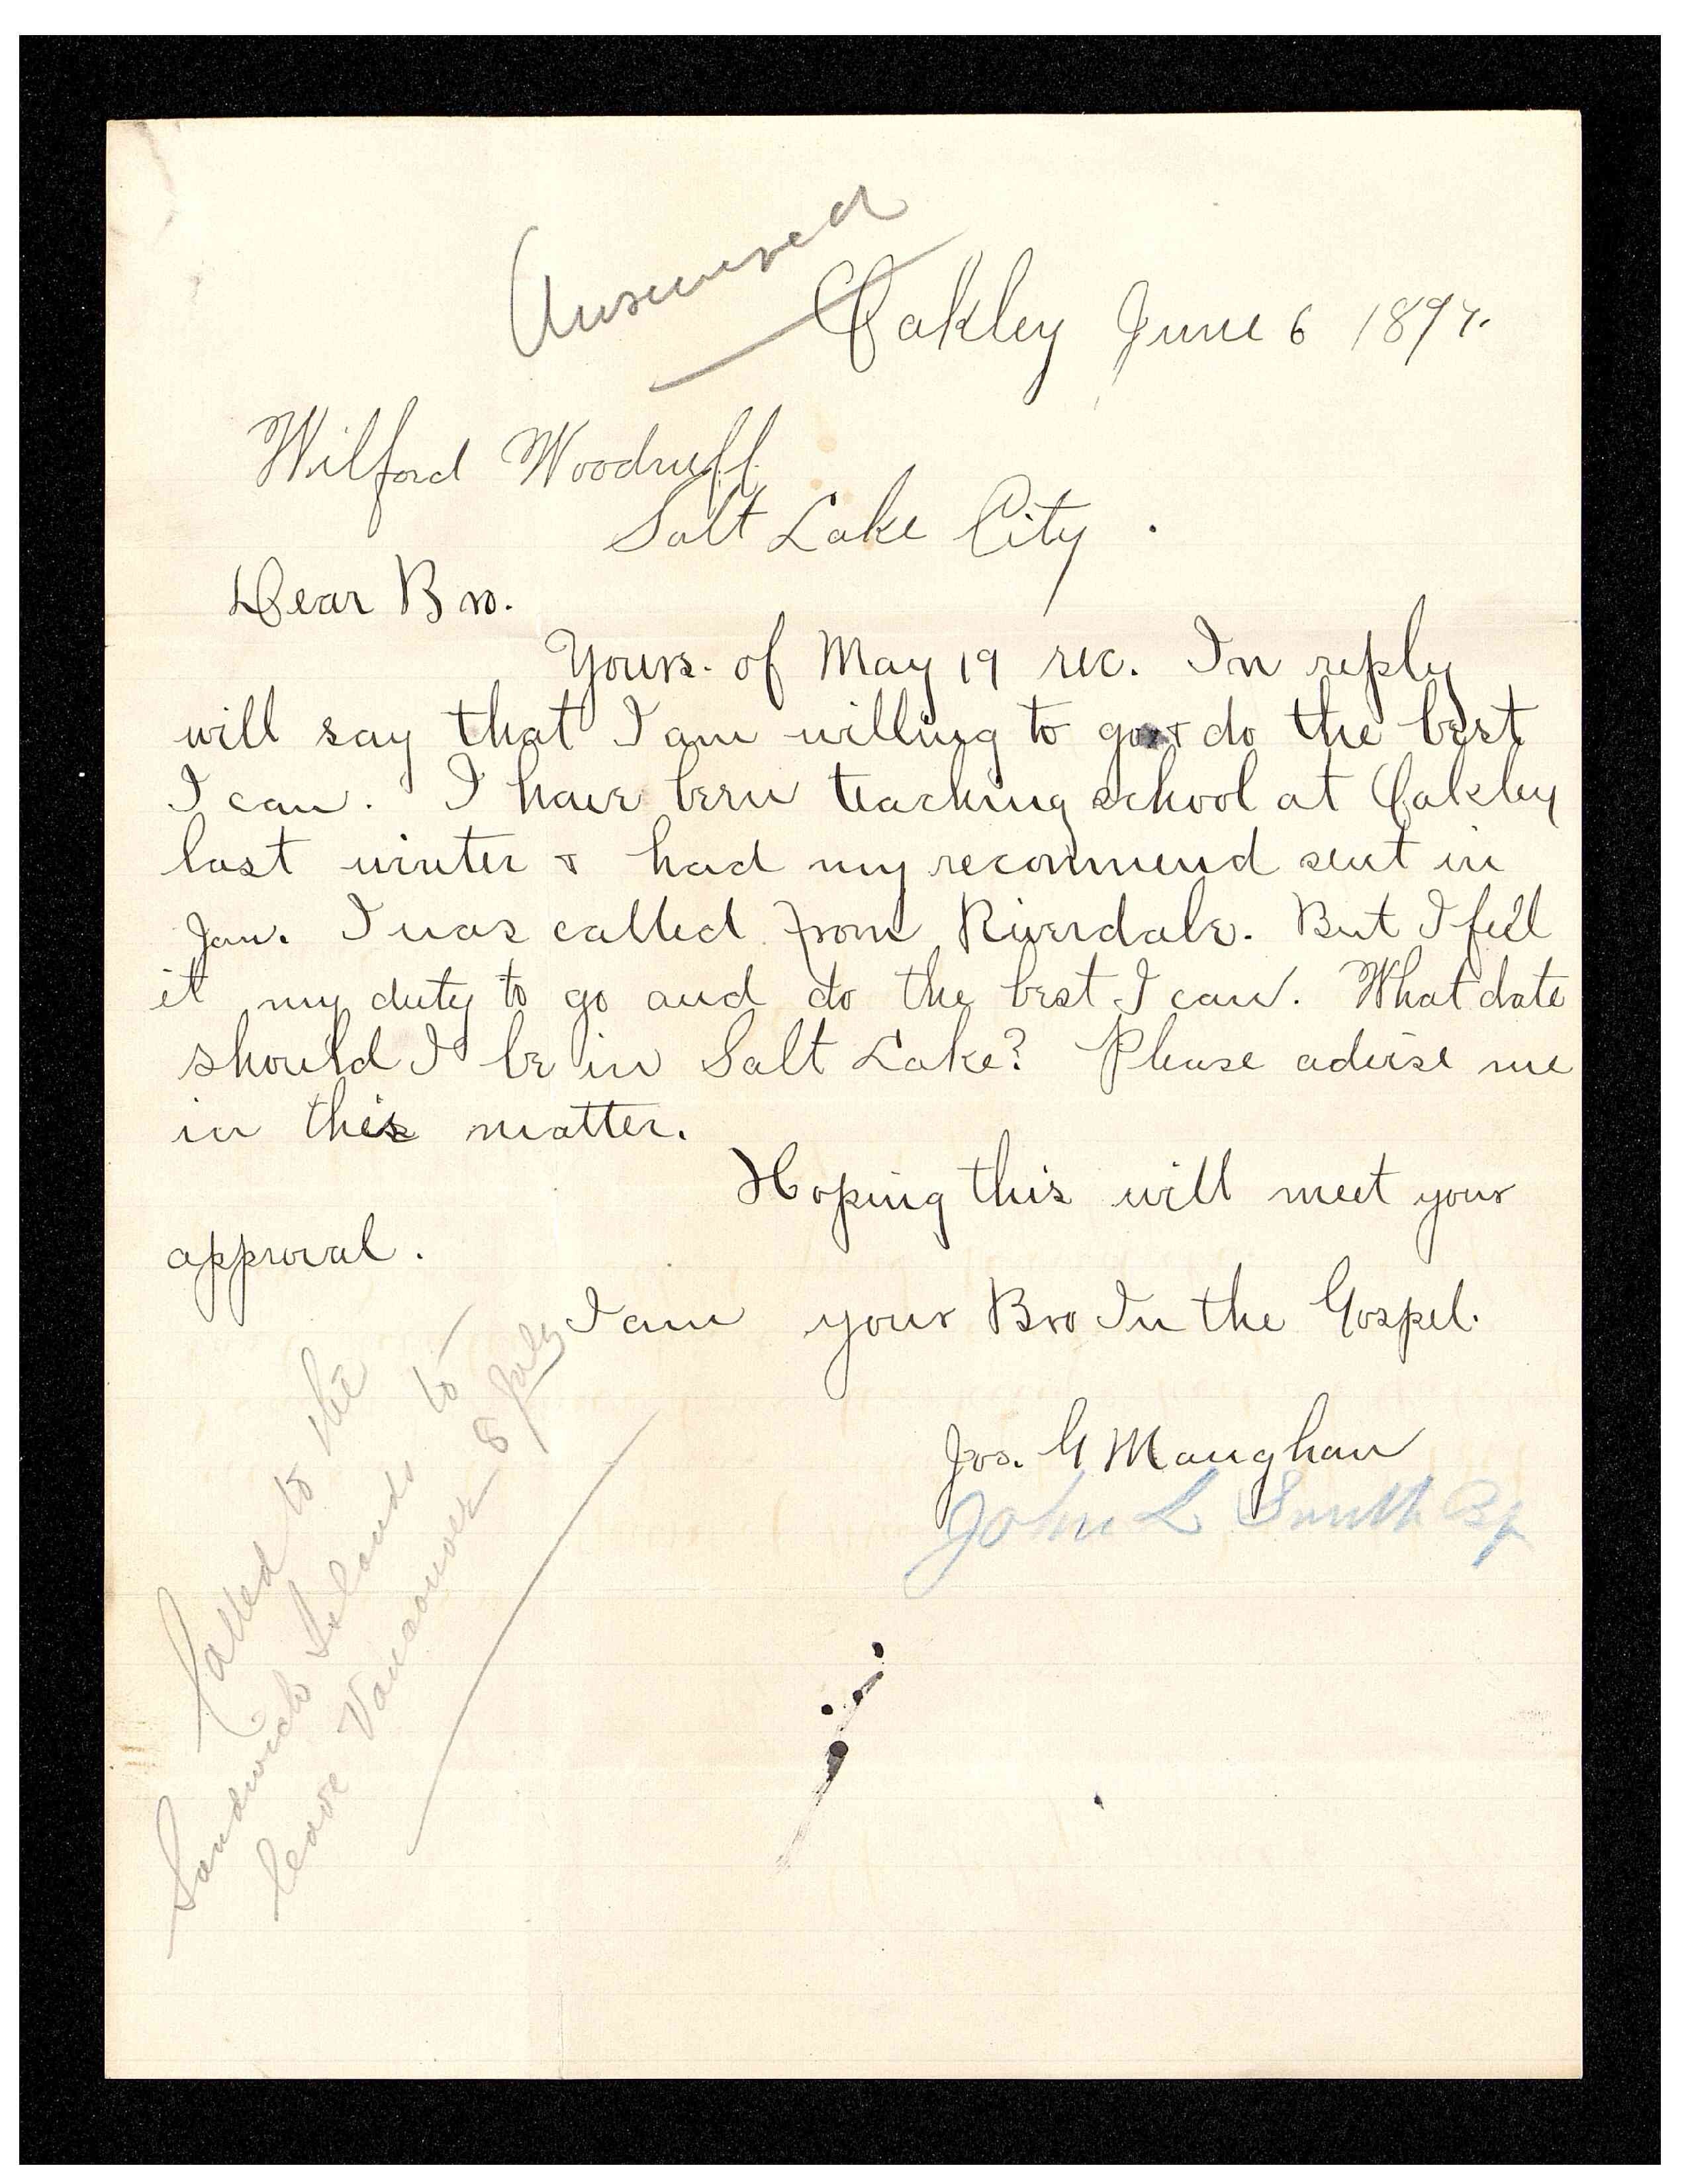 Answered
Oakley June 6 1897.
Wilford Woodruff
Salt Lake City.
Dear Bro.
Yours. of May 19 rec. In reply
will say that I am willing to go & do the best
I can. I have been teaching school at Oakley
last winter & had my recommend sent in
Jan. I was called from Riverdale. But I feel
it my duty to go and do the best I can. What date
should I be in Salt Lake? Please advise me
in this matter.
Hoping this will meet your
approval.
I am your Bro In the Gospel.
Jos. G Maughan
John L Smith Bp
Called to the
Sandwich Islands to
leave Vancouver 8 July